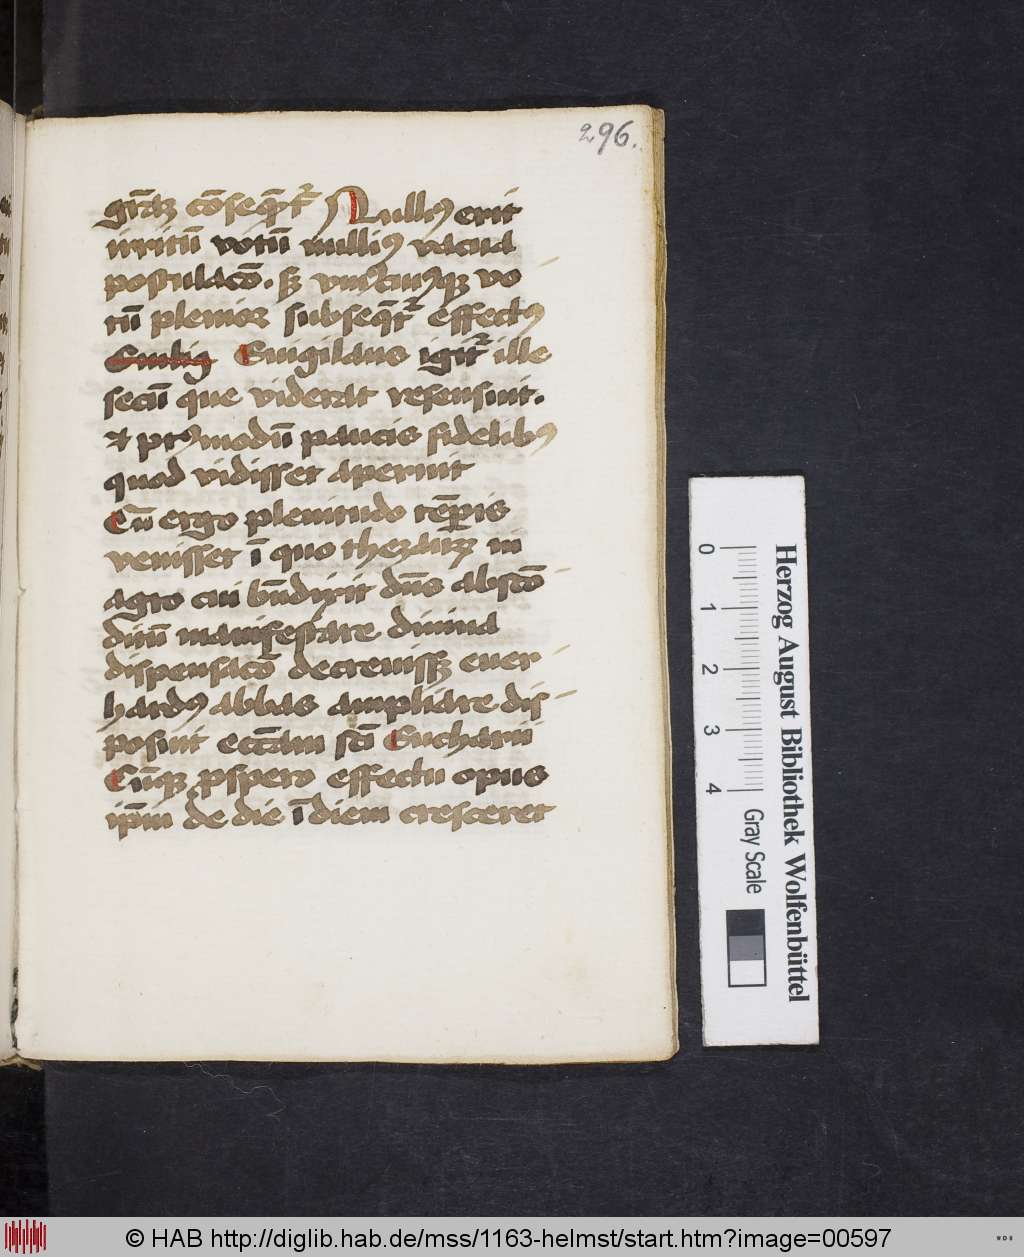 296.
gr̄az cōseq̄ntr̄ Nullius erit
irritū votū nullius vacua
postulacō. sz vniuscuiusqz vo
tū plenior subseq̄tr effectus
Euilius Euigilans igitr ille
secū que viderat resensuit.
et postmodū paucis fidelibus
quod vidisset aperuit
Cū ergo plenitudo tēporis
venisset ī quo thezaurz in
agro cui bn̄dixit dn̄s abscō
ditū manifestare diuina
dispensacō decreuissz euer
hardus abbas ampliare dis
posuit eccl̄am sc̄i Eucharii
Cūqz prospero effectu opus
ip̄m de die ī diem cresceret
0 1 2 3 4
Herzog August Bibliothek Wolfenbüttel
Gray Scale
© HAB http://diglib.hab.de/mss/1163-helmst/start.htm?image=00597